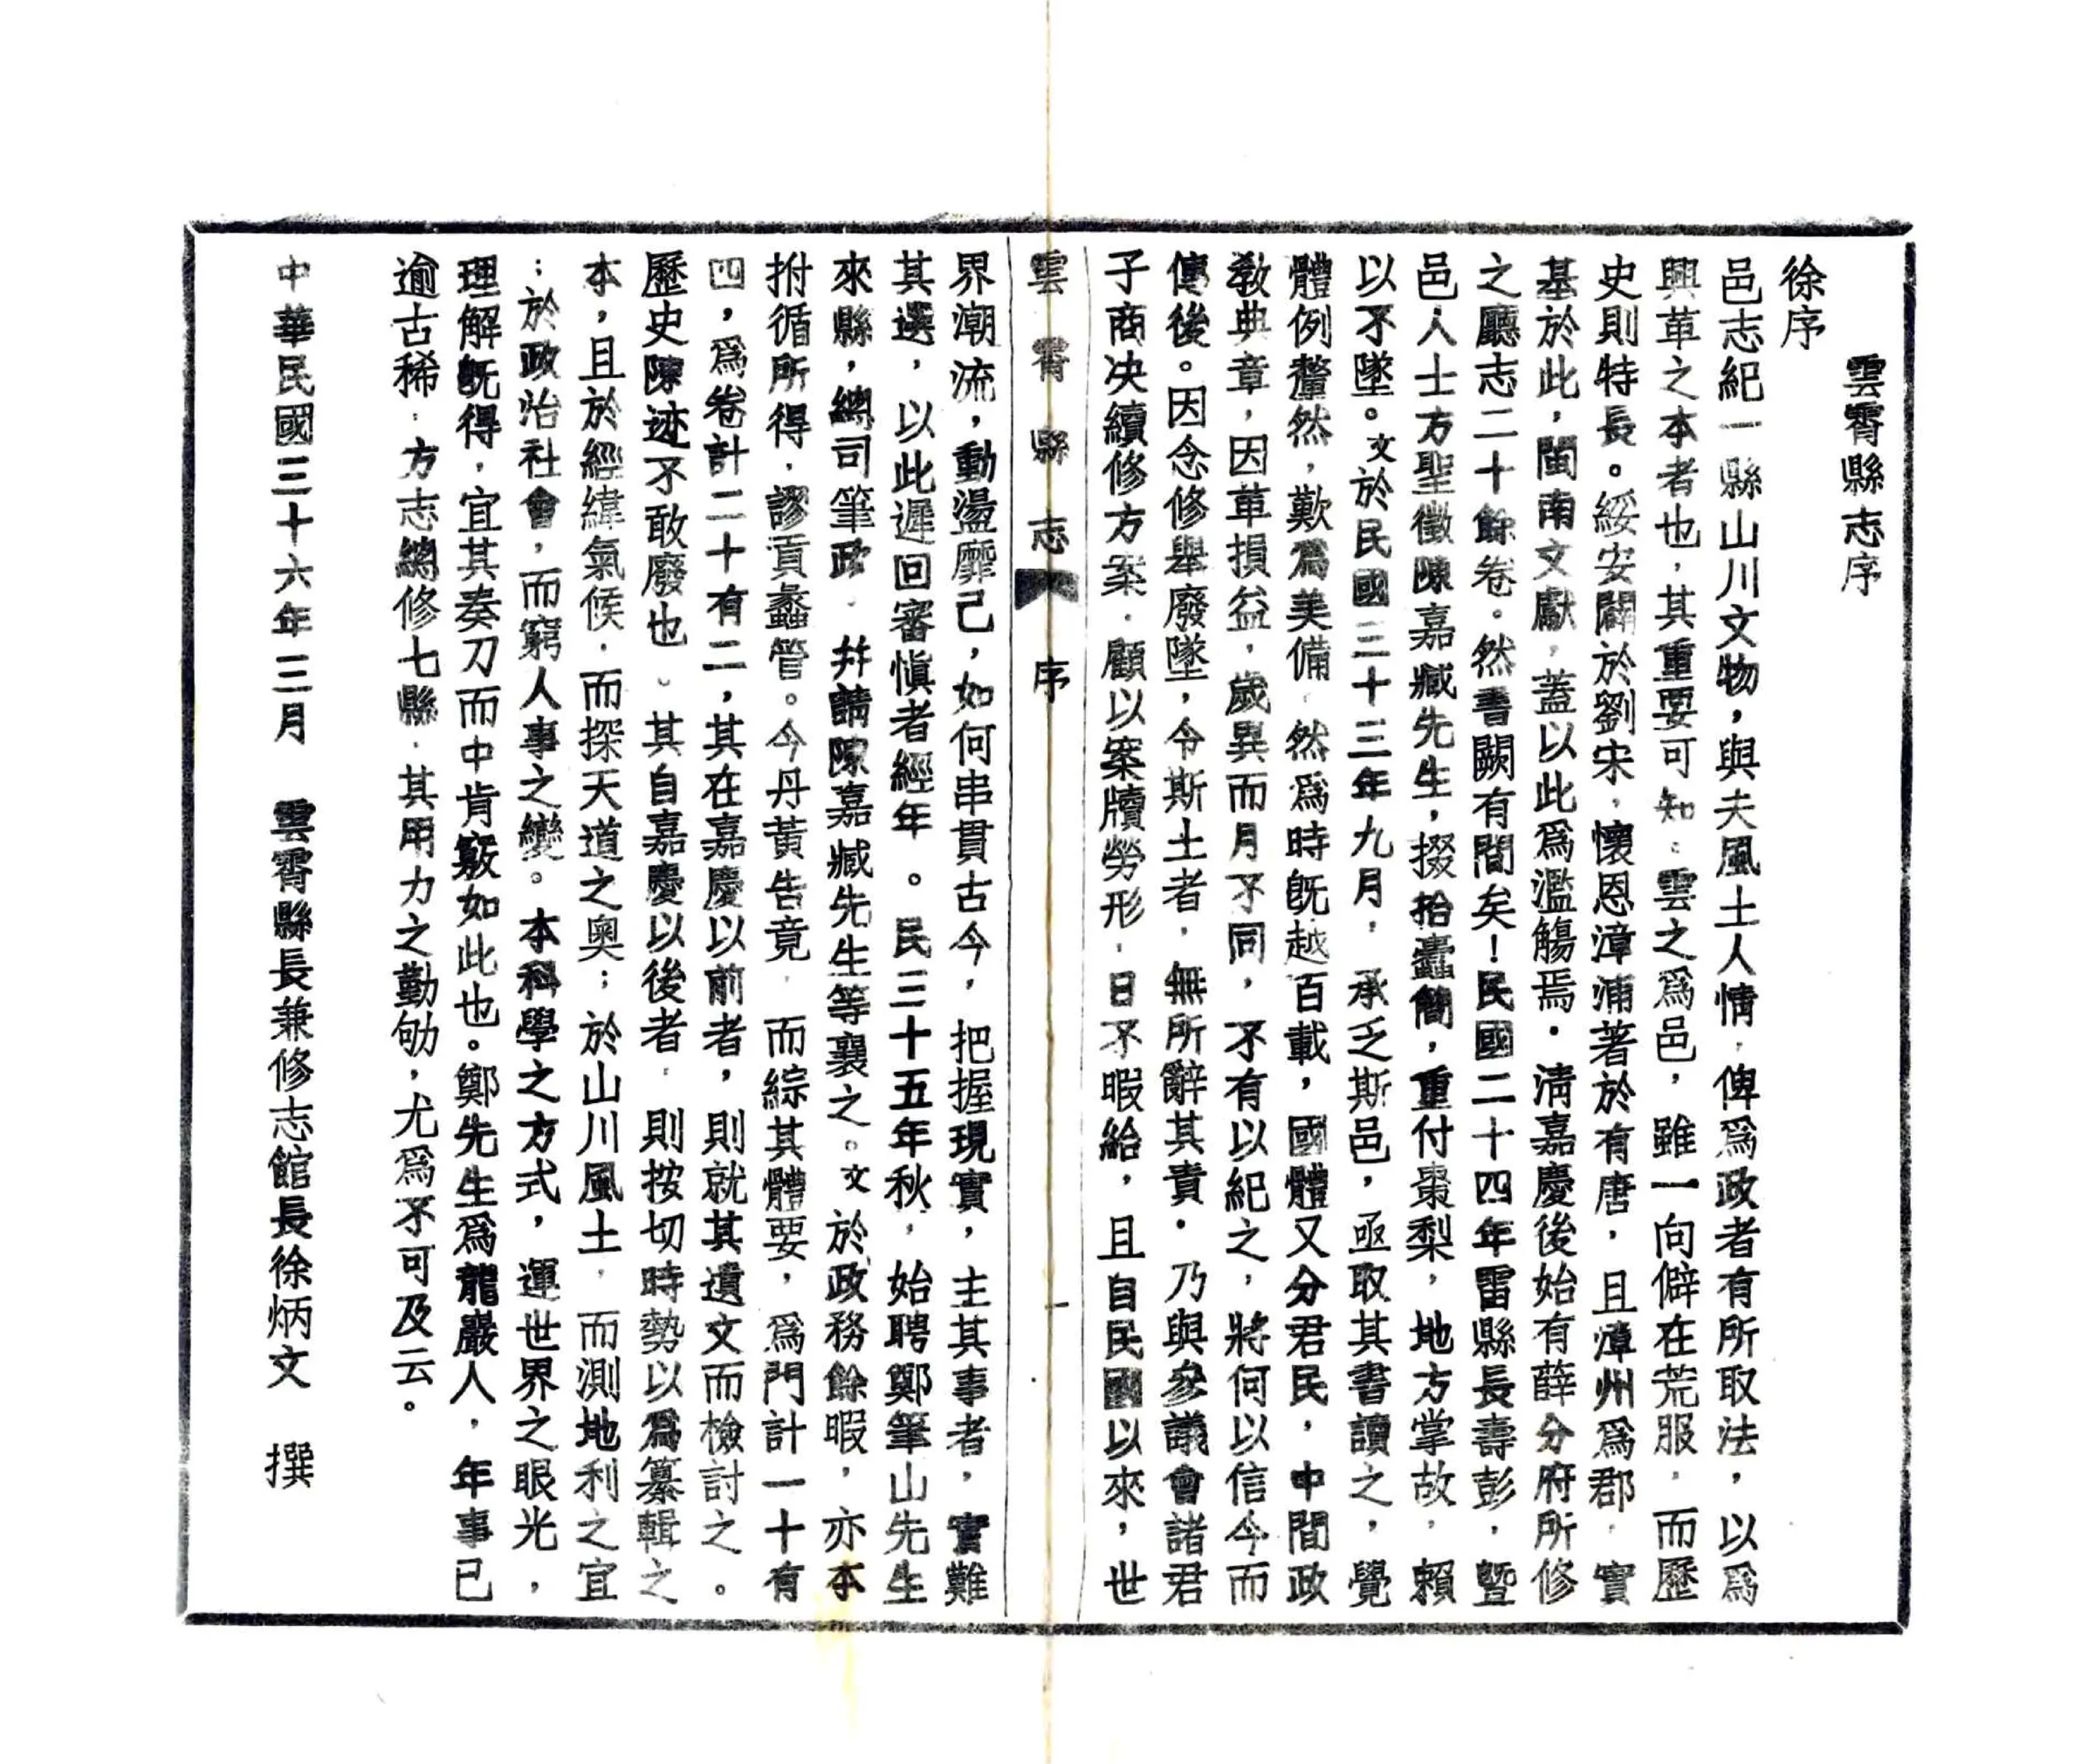 雲霄縣志序
徐序
邑志紀一縣山川文物，與夫風土人情，俾爲政者有所取法，以爲
興革之本者也，其重要可知：雲之爲邑，雖一向僻在荒服，而歷
史則特長。綏安闢於劉宋，懷恩漳浦著於有唐，且漳州爲郡，實
基於此，閩南文獻，蓋以此爲濫觴焉．清嘉慶後始有薛分府所修
之廳志二十餘卷。然書闕有間矣！民國二十四年雷縣長壽彭，曁
邑人士方聖徵陳嘉臧先生，掇拾蠹簡，重付棗梨，地方掌故，賴
以不墜。文於民國三十三年九月，承乏斯邑，亟取其書讀之，覺
體例釐然，歎爲美備，然爲時旣越百載，國體又分君民，中間政
敎典章，因革損益，歲異而月不同，不有以紀之，將何以信今而
傳後。因念修舉廢墜，令斯土者，無所辭其責．乃與參議會諸君
子商决續修方案．顧以案牘勞形，日不暇給，且自民國以來，世
雲霄縣志 序 一
界潮流，動盪靡己，如何串貫古今，把握現實，主其事者，實難
其選，以此遲回審愼者經年。民三十五年秋，始聘鄭筆山先生
來縣，總司筆政．幷請陳嘉臧先生等襄之。文於政務餘暇，亦本
拊循所得，謬貢蠡管。今丹黃告竟，而綜其體要，爲門計一十有
四，爲卷計二十有二，其在嘉慶以前者，則就其遺文而檢討之。
歷史陳迹不敢廢也。其自嘉慶以後者，則按切時勢以爲纂輯之
本，且於經緯氣候，而探天道之奧；於山川風土，而測地利之宜
；於政治社會，而窮人事之變。本科學之方式，運世界之眼光，
理解旣得，宜其奏刀而中肯竅如此也。鄭先生爲龍巖人，年事已
逾古稀：方志總修七縣，其用力之勤劬，尤爲不可及云。
中華民國三十六年三月 雲霄縣長兼修志館長徐炳文 撰